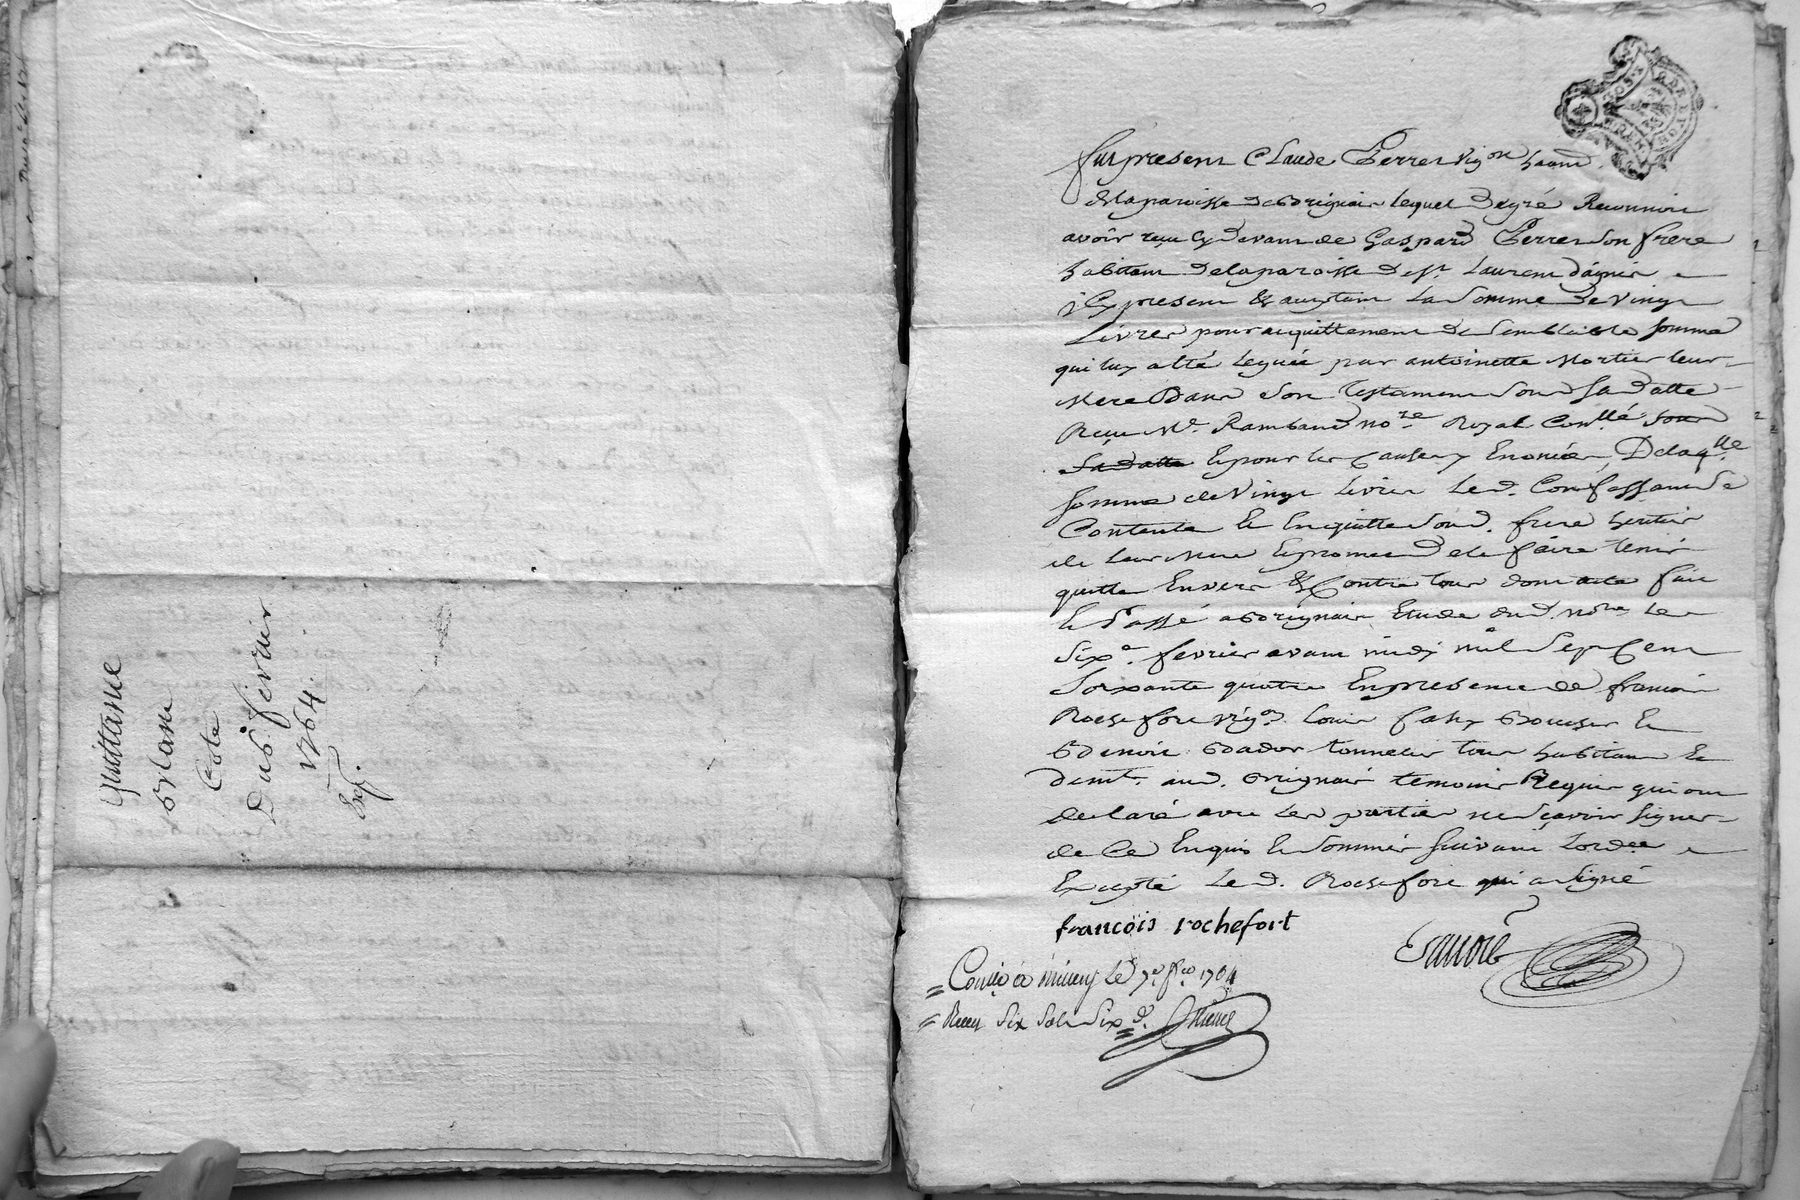 Quittance
Blanc
Cote
Du 6e. fevrier
1764.
Exp.
fut present Claude Perret vig.on habitt
de la paroisse de Brignais lequel de gré Reconnoit
avoir reçu cy devant de Gaspard Perret son frere
habitant de la paroisse de st. Laurent d'agnis
icy present & aceptant La Somme de vingt
Livres pour acquittement de Semblable Somme
qui luy a été Leguée par antoinette Mortier leur
Mere Dans son Testament Sous Sa Datte
Reçu Me. Rambaud no.re Royal Con.llé sous
Sa datte Et pour les Causes y Enoncées, De laq.lle
Somme de Vingt Livres Led. Confessant Se
Contente Et En quitte Sond. frere heritier
de Leur Mere Et promet de le faire tenir
quitte Envers & Contre tous dont acte fait
Et Passé a Brignais Etude dud. no.re Le
Six.e fevrier avant midy mil Sept Cent
Soixante quatre En presence de francois
Rochefort vig.on Louis faky Boucher Et
Benoit Bador tonnelier tous habitant Et
demt. aud. Brignais temoins Requis qui ont
declaré avec Les parties ne Sçavoir Signer
de Ce Enquis Et Sommés Suivant Lord.ce
Excepté Led. Rochefort qui a Signé
francois rochefort
Con.lé à Millery Le 7e. f.er 1764
Reçu Six Sols Six d.